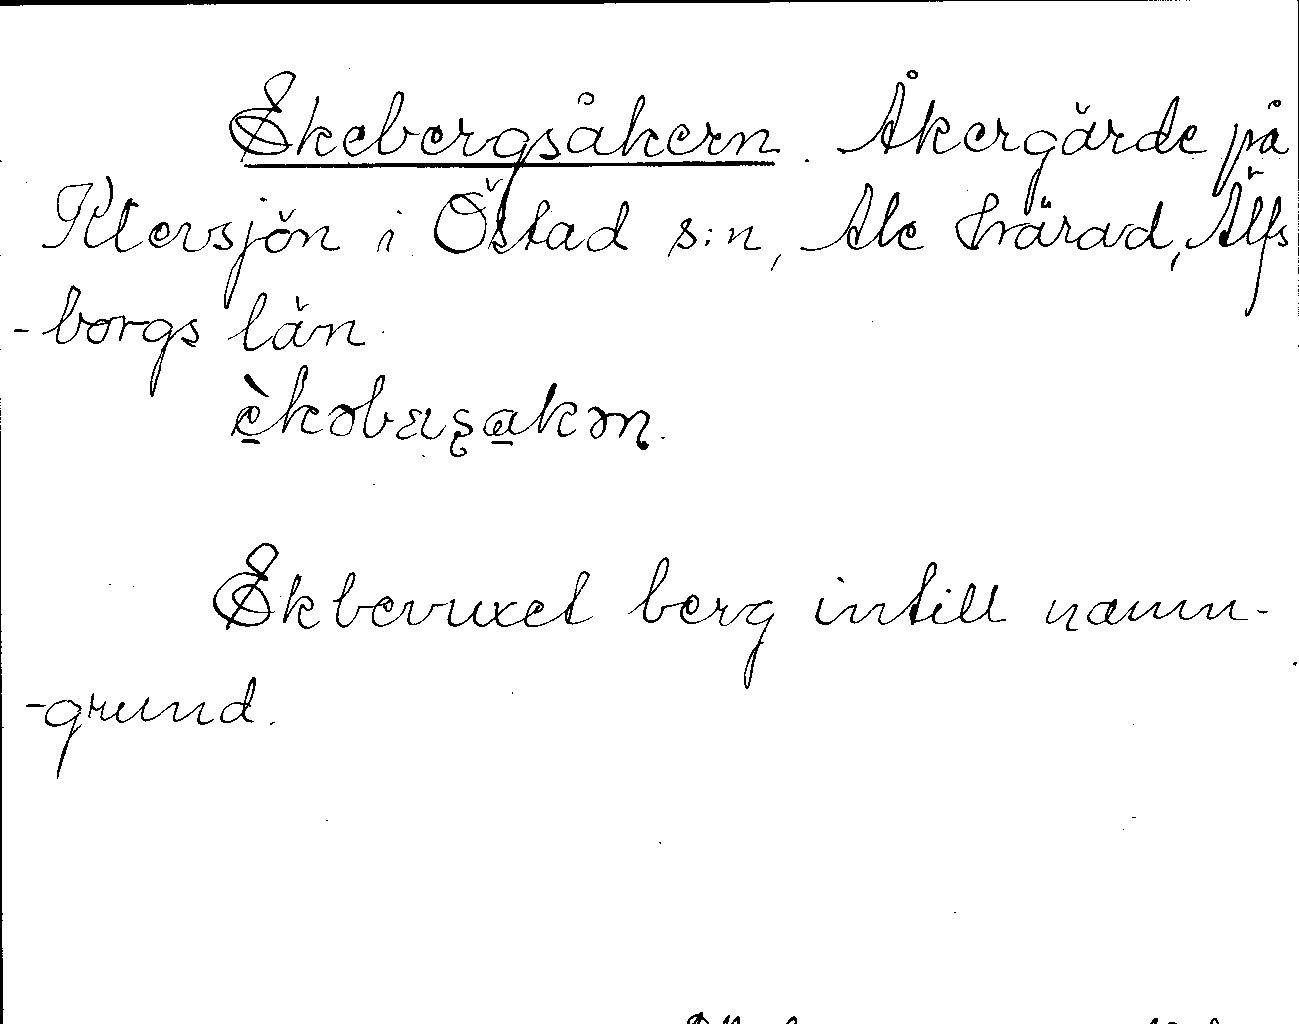 Ekebergsåkern. Åkergärde på
Klevsjön i Östad s:n, Ale härad, Älfs
-borgs län.
Ekbevuxet berg intill namn-
-grund.